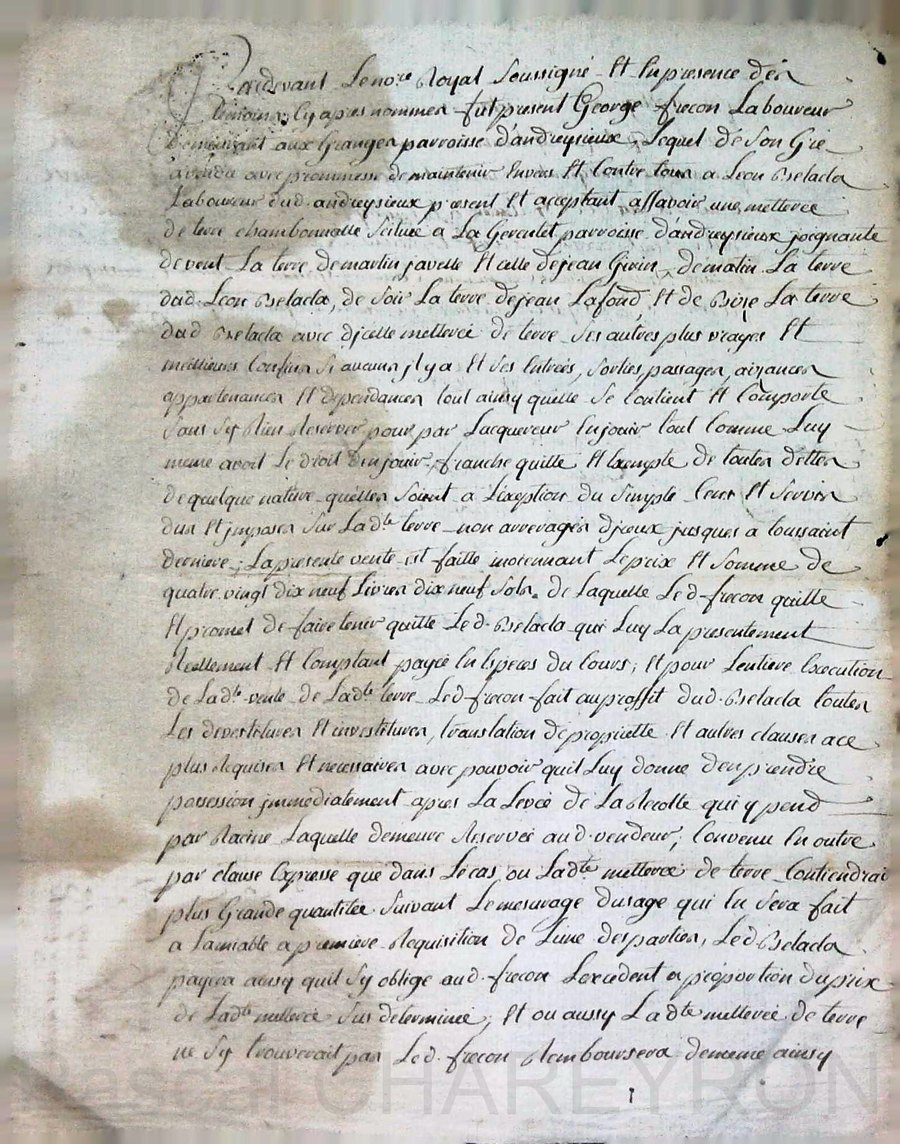 Pardevant Le no.re Royal Soussigné Et En presence des
temoins Cy apres nommés fut present George frecon Laboureur
demeurant aux Granges parroisse d'andreysieux, Lequel de Son Gré
a vendu avec prommesse de maintenir Envers Et Contre tous a Leon Relada
Laboureur dud. andreysieux present Et acceptant assavoir une metterée
de terre chambonnalle Scituée a La Gerenlet parroisse d'andreysieux joignante
de vent La terre de martin javelle Et celle de jean Girin, de matin La terre
dud. Leon Relada, de Soir La terre de jean Lafond, Et de Bize La terre
dud Relada avec dicelle metterée de terre Ses autres plus vrayes Et
meilleurs Confins Si aucuns jl y a Et Ses Entrées, Sorties passages, aizances
appartenances Et dependances tout ainsy quelle Se Contient Et Comporte
Sans S'y Rien Reserver pour par Lacquereur En jouir tout Comme Luy
meme avoit Le droit den jouir, franche quitte Et Exempte de toutes dettes
de quelque nature quelles Soient a L'exeption du Simple Cens Et Servis
dus Et jmposés Sur Lad.te terre non arreragés djceux jusques a toussaint
derniere; La presente vente est faitte moiennant Le prix Et Somme de
quatre vingt dix neuf Livres dix neuf Sols, de Laquelle Led. frecon quitte
Et promet de faire tenir quitte Led. Relada qui Luy La presentement
Reellement Et Comptant payée En Especes du Cours; Et pour Lentiere Execution
de Lad.te vente de Lad.te terre Led. frecon fait au proffit dud. Relada toutes
Les devestitures Et investitures, translation de propriette Et autres clauses a ce
plus Requises Et necessaires avec pouvoir quil Luy donne den prendre
possession jmmediatement apres La Levée de La Recolte qui y pend
par Racine Laquelle demeure Reservée aud. vendeur, Convenu En outre
par clause Expresse que dans Le cas ou Lad.te metterée de terre Contiendrai
plus Grande quantitée Suivant Le mesurage dusage qui En Sera fait
a Lamiable a premiere Requisition de L'une des parties, Led. Relada
payera ainsy quil S'y oblige aud. frecon Lexcedent a proportion du prix
de Lad.te metterée Sus determinée; Et ou aussy Lad.te metterée de terre
ne S'y trouverait pas Led. frecon Remboursera de meme ainsy
Pascal CHAREYRON